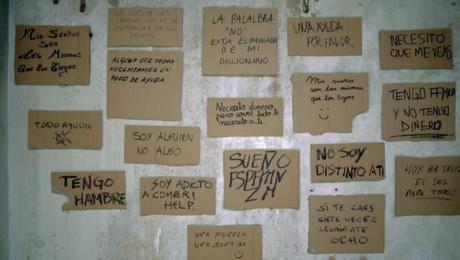 Mis Sueños
Son
Los Mismos
Que Los Tuyos
DE LOS
ALGUNA VEZ TODOS
NECESITAMOS UN
POCO DE AYUDA.
LA PALALBRA
"NO"
ESTA ELIMINADA
DE MI
DICCIONARIO
UNA AYUDA
POR FAVOR
NECESITO
QUE ME VEAS
Mis sueños
son los mismos
que los tuyos
TENGO
Y NO TENGO
DINERO
Necesito dinero,
pero sobre todo te
necesito a ti
TODO AYUDA
SOY ALGUIEN
NO ALGO
SUEÑO
ESPERAN
ZA
NO SOY
DISTINTO A TI
HOY HA
EL SOL
PARA TODOS
TENGO
HAMBRE
SOY ADICTO
A COMER!
HELP.
SI TE CAES
SIETE VECES
LEVÁNTATE
OCHO
UNA MONEDA
UNA SONRISA